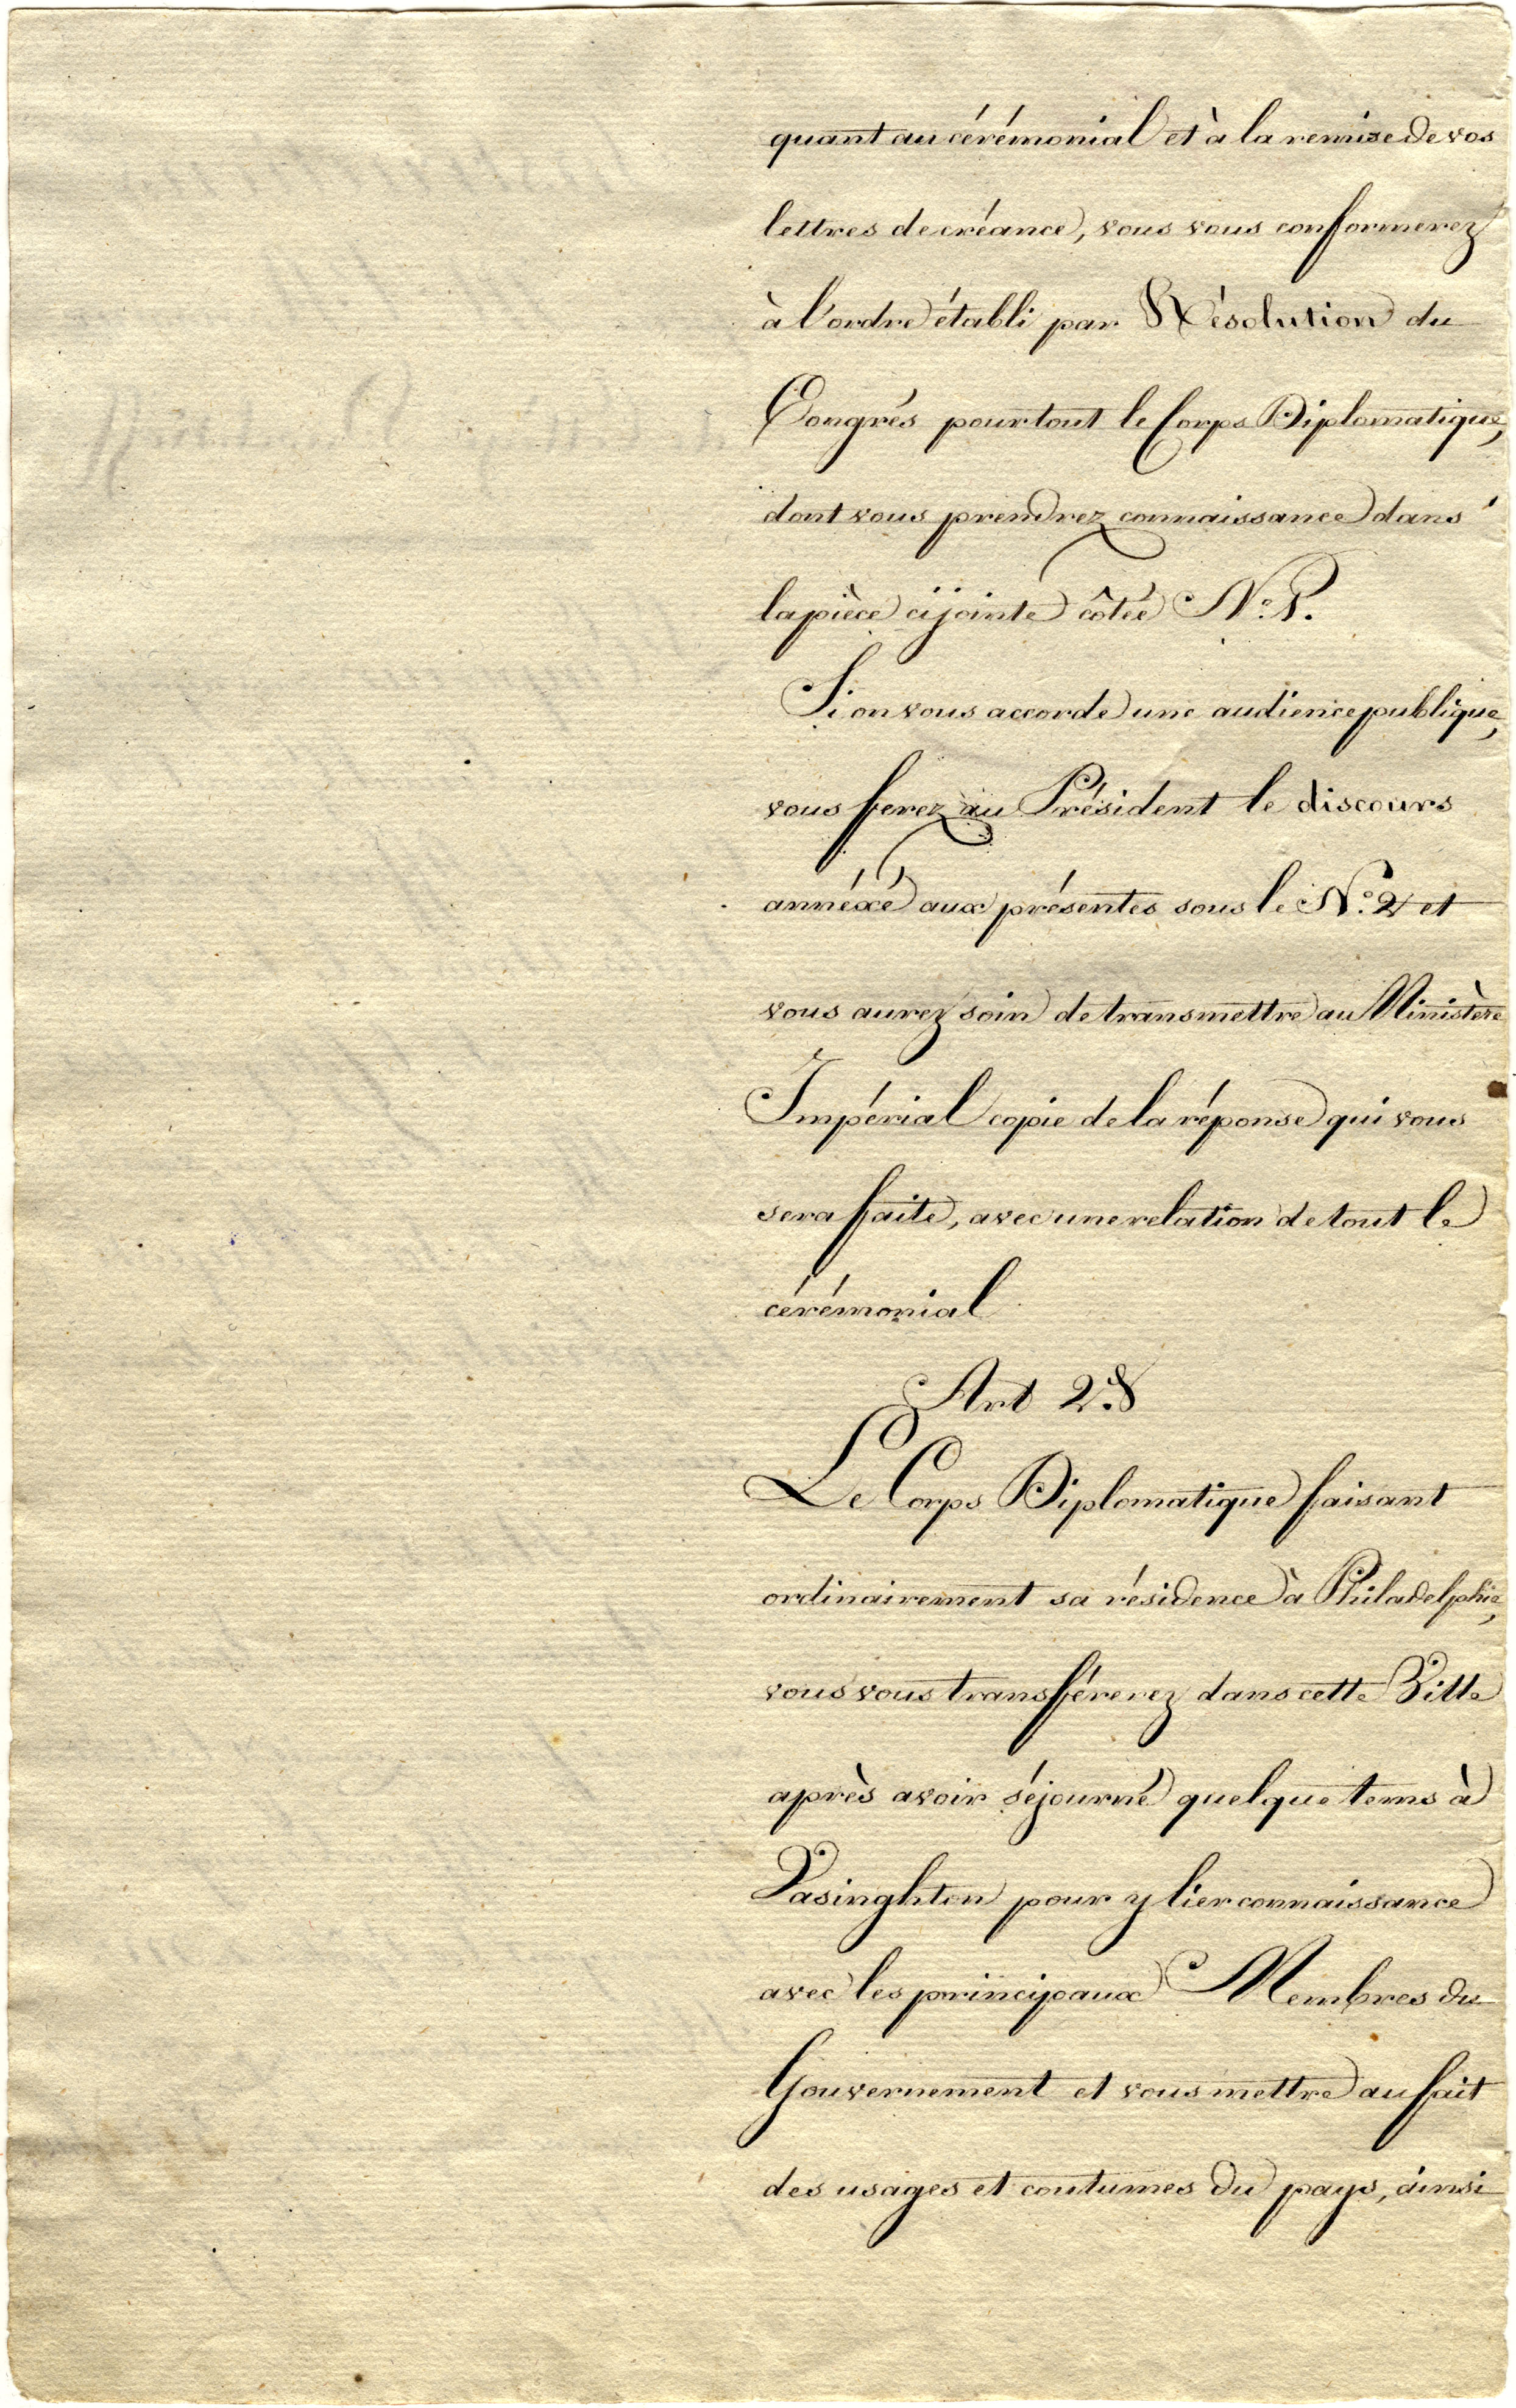 quant au cérémonial et à la remise de vos
lettres de créance, vous vous conformerez
à l'ordre établi par Résolution du
Congrès pour tout le Corps Diplomatique,
dont vous prendrez connaissance dans
la pièce cijointe côtée N.º 1.
Si on vous accorde une audience publique,
vous ferez au Président le discours
annéxé aux présentes sous le N.º 2 et
vous aurez soin de transmettre au Ministère
Impérial copie de la réponse qui vous
sera faite, avec une relation de tout le
cérémonial
Art 2.d
Le Corps Diplomatique faisant
ordinairement sa résidence à Philadelphie,
vous vous transférerez dans cette Ville
après avoir séjourné quelque tems à
Vasinghton pour y lier connaissance
avec les principaux Membres du
Gouvernement et vous mettre au fait
des usages et coutumes du pays, ainsi